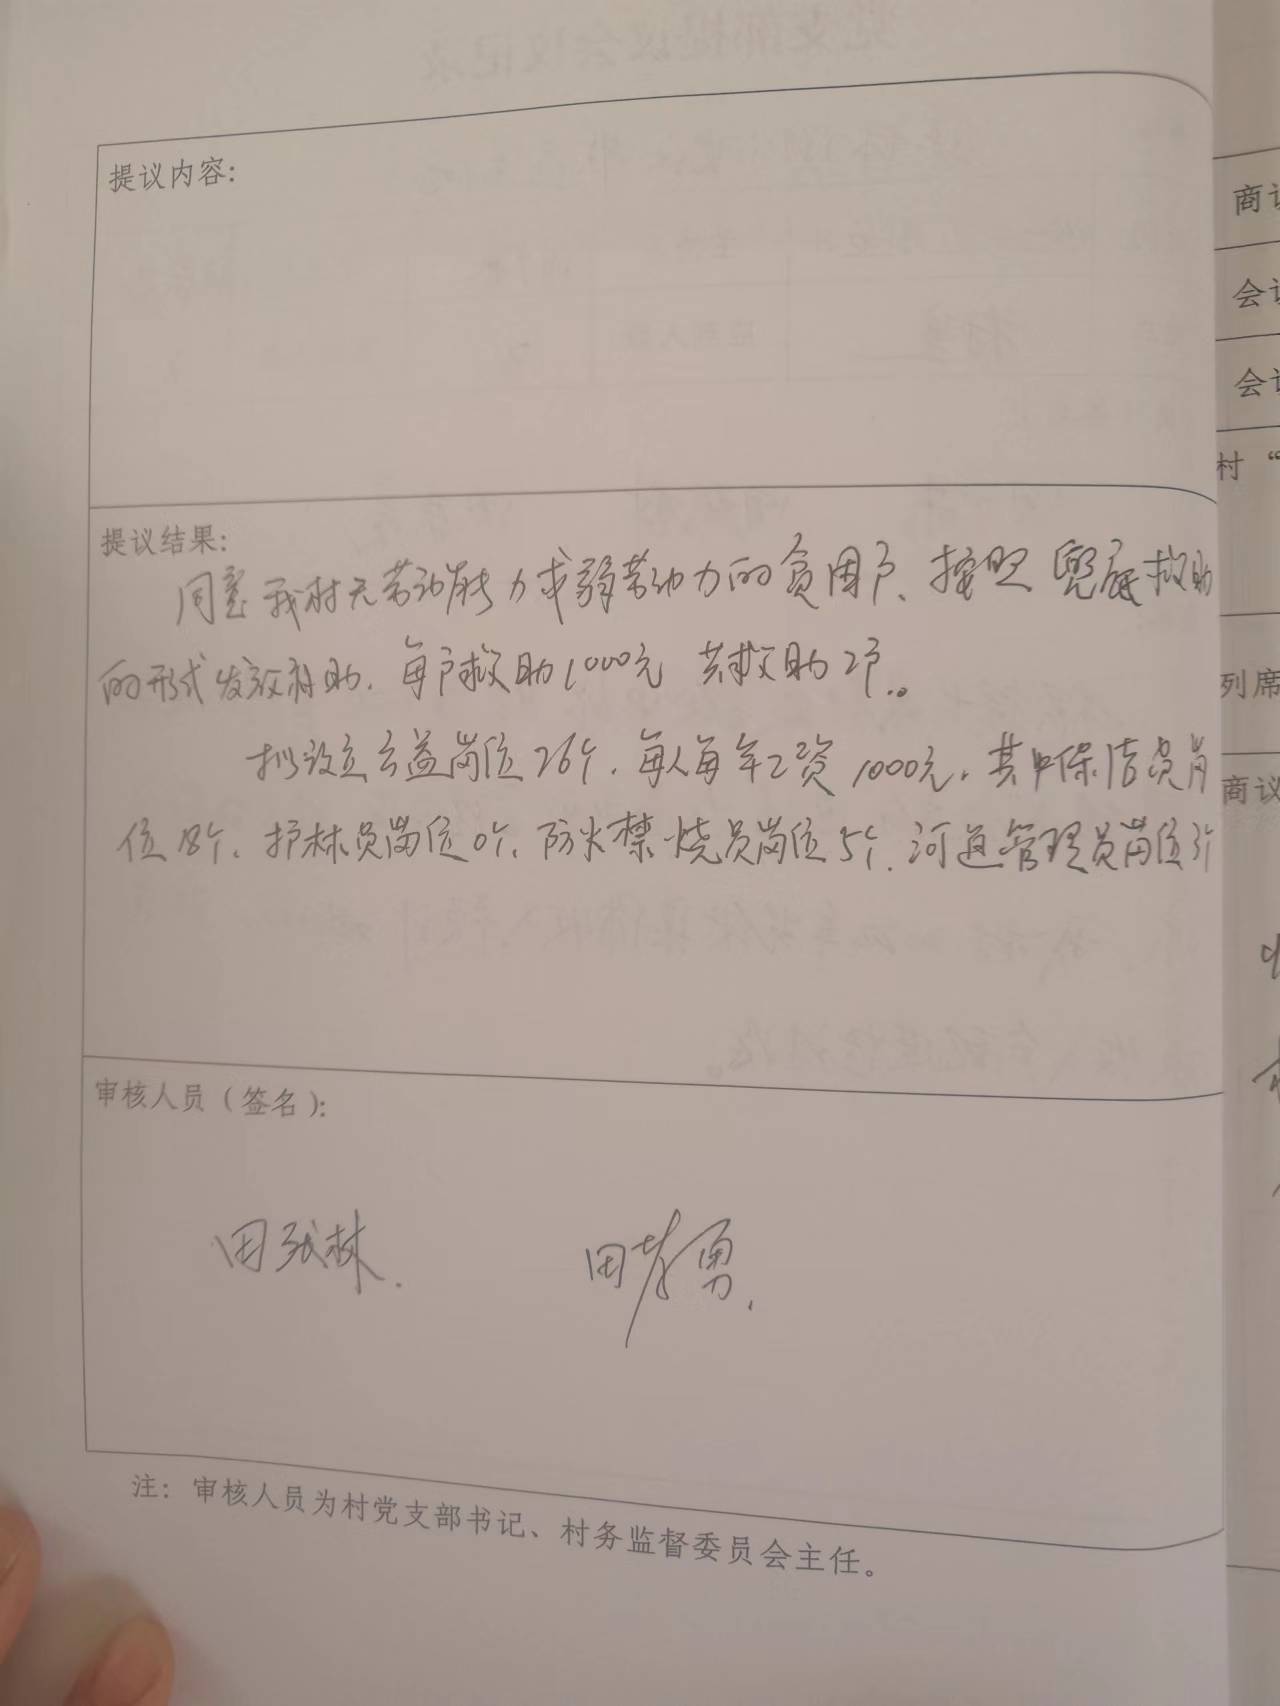 提议内容:
提议结果:
同意我村无劳动能力或弱劳动力的贫困户、按照兜底救助
的形式发放补助.每户救助1000元 共救助2户.。
拟设立公益岗位26个.每人每年工资1000元.其中保洁员岗
位18个.护林员岗位0个.防火禁烧员岗位5个.河道管理员岗位3个
审核人员(签名):
田张林. 田孝勇.
注: 审核人员为村党支部书记、村务监督委员会主任。
商议
会议
会议
村“
列席
商议